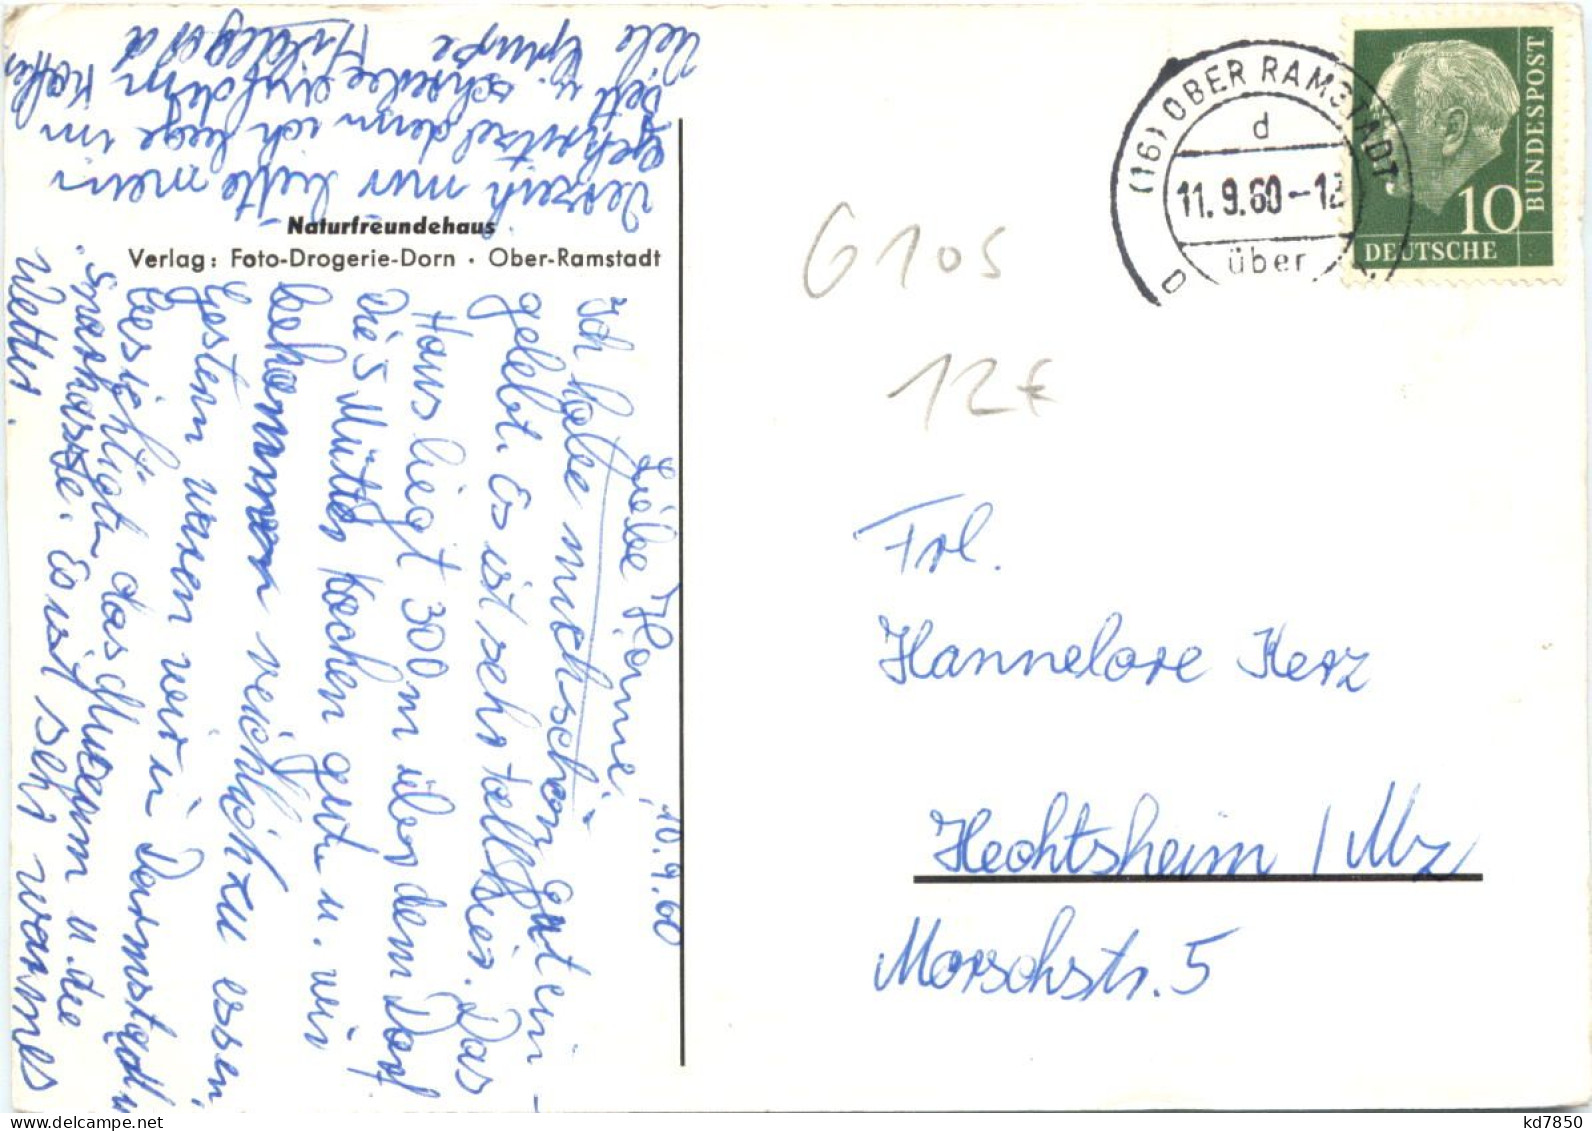 Naturfreundehaus
Verlag: Foto-Drogerie-Dorn · Ober-Ramstadt
10.9.60
Liebe Hanne!
Ich habe mich schon gut ein-
gelebt. Es ist sehr toll hier. Das
Haus liegt 300 m über dem Dorf
Die 5 Mütter kochen gut u. wir
bekommen reichlich zu essen.
Gestern waren wir in Darmstadt u.
besichtigten das Museum u. die
Sparkasse. Es ist sehr warmes
Wetter.
Verzeih mir bitte mein
Gekritzel denn ich liege im
Bett u. schreibe auf dem Koffer
Viele Grüße
Hildegard
(16) OBER RAMSTADT
d
11.9.60-12
über
DEUTSCHE
BUNDESPOST
10
G 105
12 €
Frl.
Hannelore Herz
Hechtsheim / Mz
Morschstr. 5
kd7850